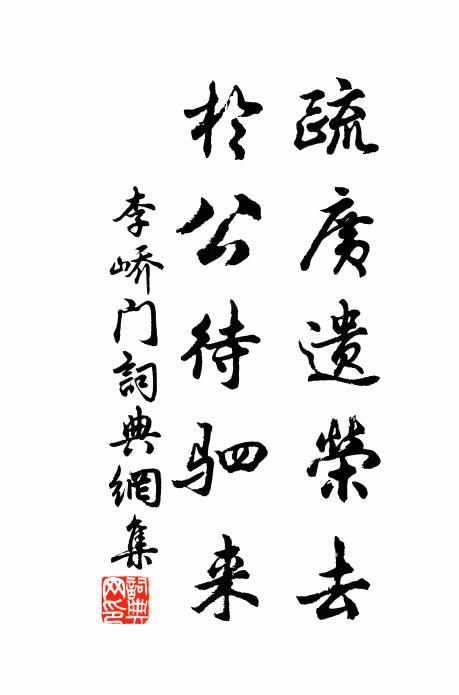 疏廣遺榮去
於公待驷来
李峤门詞典網集
詞典网印